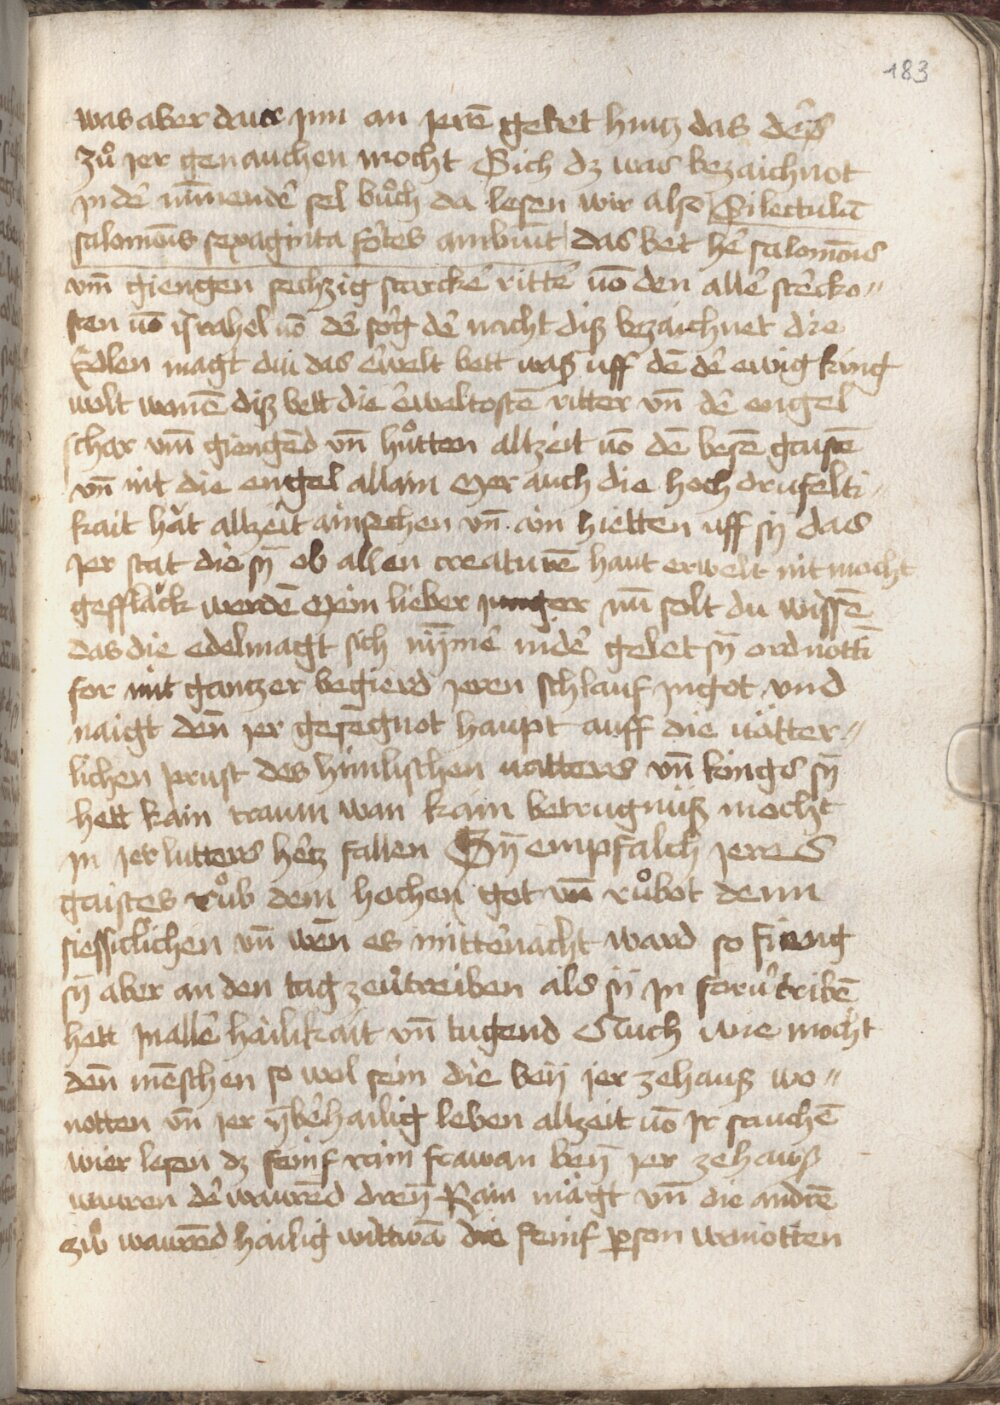 183
was aber daus jnn an jerē gebet huntz das dēs
zů jer genauchen mocht Sich dz was bezaichnot
jn dē mīnendē sel bůch da lesen wir also Si lectulū
salomōis sexaginta fōtes ambiūt das bet hē salomōis
vm̄ giengen sechzig starckē rittē uō den allē stēcko〃
sten uō jsrahel uō dē sorg dē nacht diß bezaichnet die
Edlen magt diu das ērwelt bett waß uff dē dē ewig king
wolt wonē diß bett die ērweltostē ritter vn̄ dē engel
schar vm̄ giengēd vn̄ hůtten allzeit uō dē besē gaistē
vn̄ nit die engel allain Mer auch die hoch drifalti〃
kait hät allzeit ainsechen vn̄ ain hietten uff sÿ das
jer stat die sÿ ob allen creaturē haut erwelt nit mocht
gefflāck werdē Mein lieber junger nū solt du wissē
das die edelmagt sich nÿmē indē gebet sÿ ordnotti
for mit gantzer begierd jeren schlauf jn got vnd
naigt den̄ jer gesegnot haupt auff die uätter〃
lichen prust des himlischen uatters vn̄ kings sÿ
hett kain traum wan kain betrugnüß mocht
jn jer lutters hētz fallen Sÿ empfalch jeres
gaistes růb dem hochen got vn̄ růbot denn
siessiclichen vn̄ wen̄ es mittērnacht ward so fieng
sÿ aber an den tag zeūtreiben als sÿ jn forūtribē
hett jn allē hailikait vn̄ tugend Auch wie mocht
den̄ mēschen so wol sein die beÿ jer zehauß wo〃
notten vn̄ jer ÿbēhailig leben allzeit uō jr sauchē
wier lesen dz feinf rain frawan beÿ jer zehauß
wauren dē waurēd dreÿ Rain mägt vn̄ die andrē
zwo waurēd hailig wittwā die feinf pson wonotten